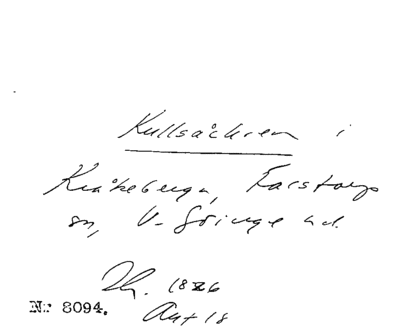 Kullsåckren i
Kråkeberga, Farstorps
sn, V. Göinge hd.
1886
Aut 18
Nr 8094.